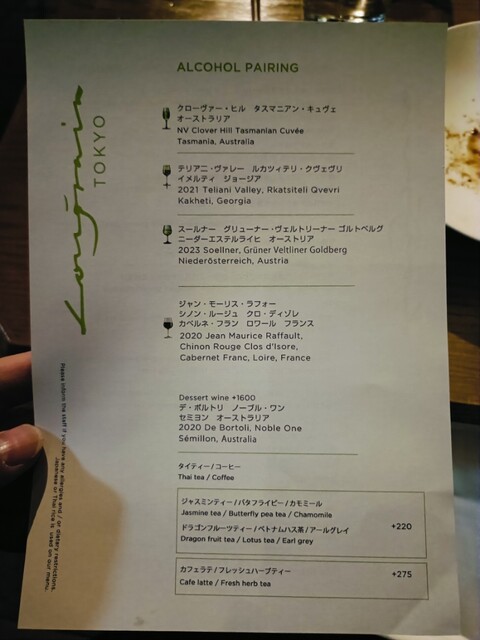 Longrain
TOKYO
ALCOHOL PAIRING
クローヴァー・ヒル　タスマニアン・キュヴェ
オーストラリア
NV Clover Hill Tasmanian Cuvée
Tasmania, Australia
テリアニ・ヴァレー　ルカツィテリ・クヴェヴリ
イメルティ　ジョージア
2021 Teliani Valley, Rkatsiteli Qvevri
Kakheti, Georgia
スールナー　グリューナー・ヴェルトリーナー ゴルトベルグ
ニーダーエステルライヒ　オーストリア
2023 Soellner, Grüner Veltliner Goldberg
Niederösterreich, Austria
ジャン・モーリス・ラフォー
シノン・ルージュ　クロ・ディゾレ
カベルネ・フラン　ロワール　フランス
2020 Jean Maurice Raffault,
Chinon Rouge Clos d'Isore,
Cabernet Franc, Loire, France
Dessert wine +1600
デ・ボルトリ　ノーブル・ワン
セミヨン　オーストラリア
2020 De Bortoli, Noble One
Sémillon, Australia
タイティー/コーヒー
Thai tea / Coffee
ジャスミンティー/バタフライピー/カモミール
Jasmine tea / Butterfly pea tea / Chamomile
ドラゴンフルーツティー/ベトナムハス茶/アールグレイ
+220
Dragon fruit tea / Lotus tea / Earl grey
カフェラテ/フレッシュハーブティー
+275
Cafe latte / Fresh herb tea
Please inform the staff if you have any allergies and / or dietary restrictions.
Japanese or Thai rice is used on our menu.